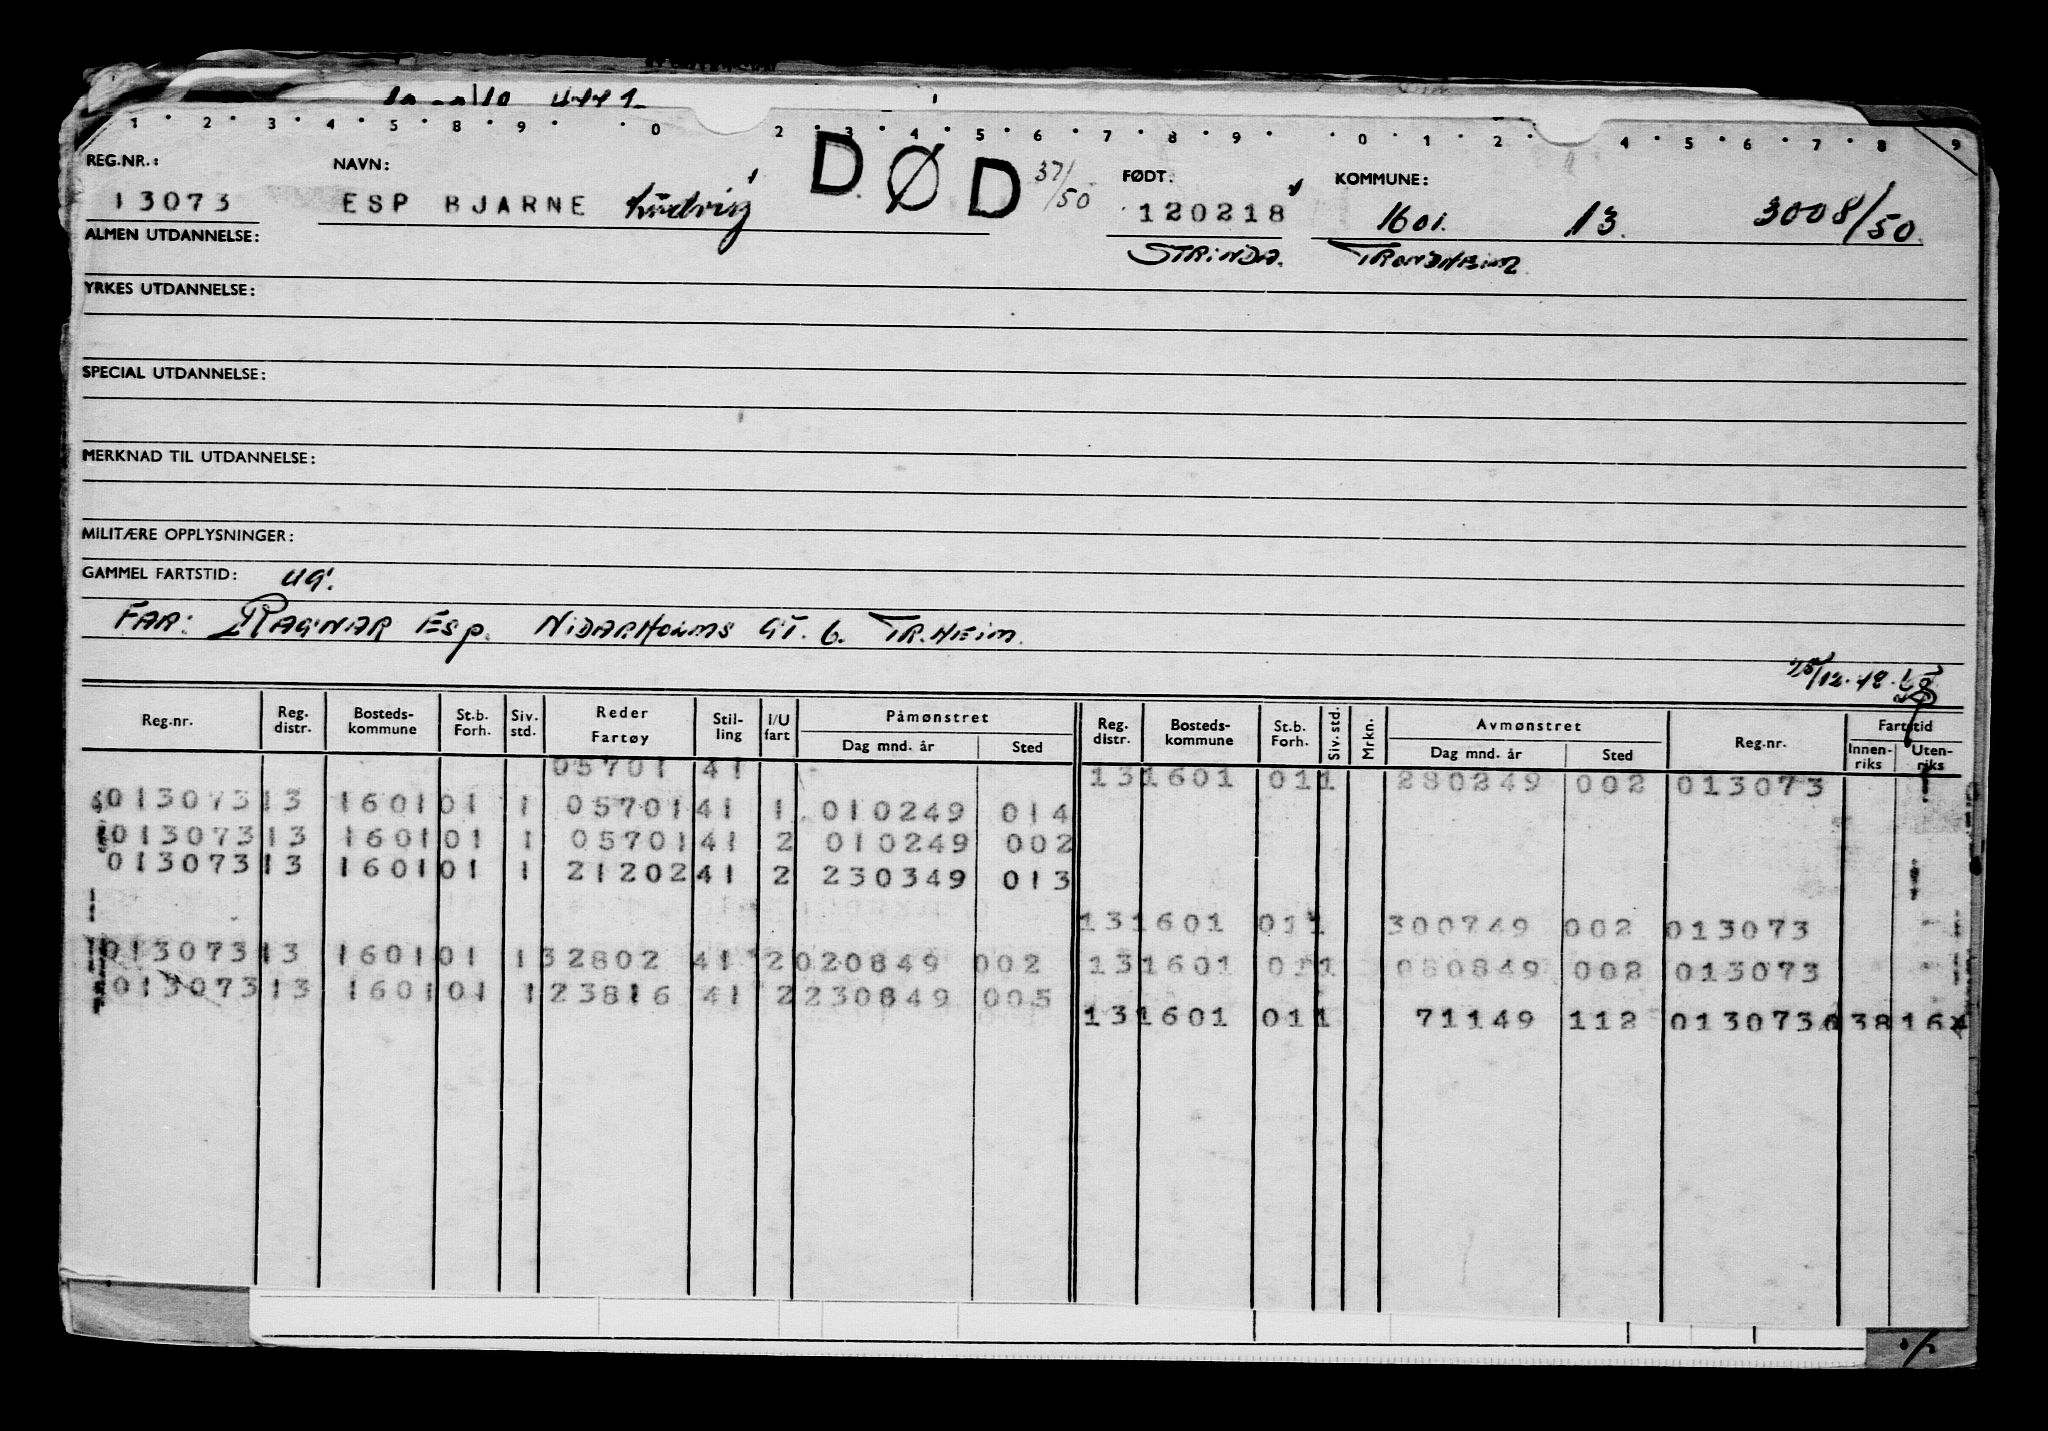 1 2 3 4 5 8 9 0 2 3 4 5 6 7 8 9 0 1 2 4 5 6 7 8 9
REG.NR.: NAVN: DØD 37/50 FØDT: KOMMUNE:
13073 ESP BJARNE Ludvig 120218 1601. 13. 3008/50.
ALMEN UTDANNELSE: STRINDA. TRONDHEIM
YRKES UTDANNELSE:
SPECIAL UTDANNELSE:
MERKNAD TIL UTDANNELSE:
MILITÆRE OPPLYSNINGER:
GAMMEL FARTSTID: UG.
FAR: RAGNAR ESP. NIDARHOLMS GT. 6. TR.HEIM.
Reg.nr. Reg. distr. Bosteds- kommune St.b. Forh. Siv. std. Reder Fartøy Stil- ling I/U fart Påmønstret Dag mnd. år Sted Reg. distr. Bosteds- kommune St.b. Forh. Siv. std. Mrkn. Avmønstret Dag mnd. år Sted Reg.nr. Fartstid Innen- riks Uten- riks
05701 41 131601 011 280249 002 013073
013073 13 1601 01 1 05701 41 1 010249 014
013073 13 1601 01 1 05701 41 2 010249 002
013073 13 1601 01 1 21202 41 2 230349 013
131601 011 300749 002 013073
013073 13 1601 01 1 32802 41 2 020849 002 131601 011 080849 002 013073
013073 13 1601 01 1 23816 41 2 230849 005
131601 011 71149 112 013073 38 164